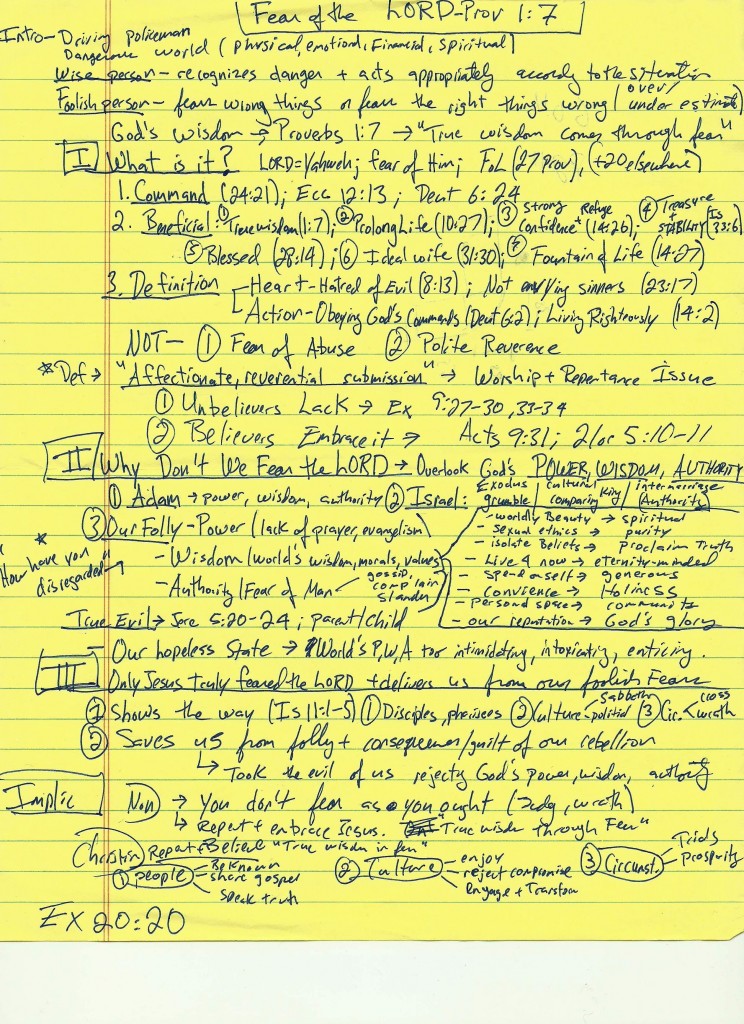 Fear of the LORD-Prov 1:7
Intro- Driving policeman
Dangerous world (physical, emotional, Financial, Spiritual)
Wise person- recognizes danger + acts appropriately accordg to the situation
Foolish person- fears wrong things or fears the right things wrong (over/under estimate)
God's wisdom → Proverbs 1:7 → "True wisdom comes through fear"
I What is it? LORD=Yahweh; fear of Him; FoL (27 Prov), (+20 elsewhere)
1. Command (24:21); Ecc 12:13; Deut 6:24
2. Beneficial: ① True wisdom (1:7); ② Prolong Life (10:27); ③ Strong confidence + Refuge (14:26); ④ Treasure + STABILITY (Is 33:6)
⑤ Blessed (28:14); ⑥ Ideal wife (31:30); ⑦ Fountain of Life (14:27)
3. Definition - Heart-Hatred of Evil (8:13); Not envying sinners (23:17)
- Action-Obeying God's Commands (Deut 6:2); Living Righteously (14:2)
NOT- ① Fear of Abuse ② Polite Reverence
* Def → "Affectionate, reverential submission" → Worship + Repentance Issue
① Unbelievers Lack → Ex 9:27-30, 33-34
② Believers Embrace it → Acts 9:31; 2 Cor 5:10-11
II Why Don't We Fear the LORD → Overlook God's POWER, WISDOM, AUTHORITY
① Adam → power, wisdom, authority ② Israel: Exodus grumble / cultural comparing King / intermarriage (Authority)
③ Our Folly - Power (lack of prayer, evangelism)
- Wisdom (world's wisdom, morals, values
- Authority (Fear of Man - gossip, complain, slander
* "How have you disregarded"
- worldly Beauty → spiritual
- sexual ethics → purity
- isolate Beliefs → Proclaim Truth
- Live 4 now → eternity-minded
- Spend on self → generous
- Convience → Holiness
- personal space → community
- our reputation → God's glory
True Evil → Jere 5:20-24; parent/child
- Our hopeless State → World's P,W,A too intimidating, intoxicating, enticing.
III Only Jesus truly feared the LORD + delivers us from our foolish Fears
① Shows the way (Is 11:1-5) ① Disciples, pharisees ② Culture - Sabbath, political ③ Circ. < cross wrath
② Saves us from folly + consequences/guilt of our rebellion
↳ Took the evil of us rejectg God's power, wisdom, authority
Implic Non → You don't fear as you ought (Judg, wrath)
↳ Repent + embrace Jesus. "True wisdom through Fear"
Christian Repent + Believe "True wisdom in fear"
① people - Be Known
- share gospel
- speak truth
② Culture - enjoy
- reject compromise
- Engage + Transform
③ Circumst. - Trials
- Prosperity
EX 20:20